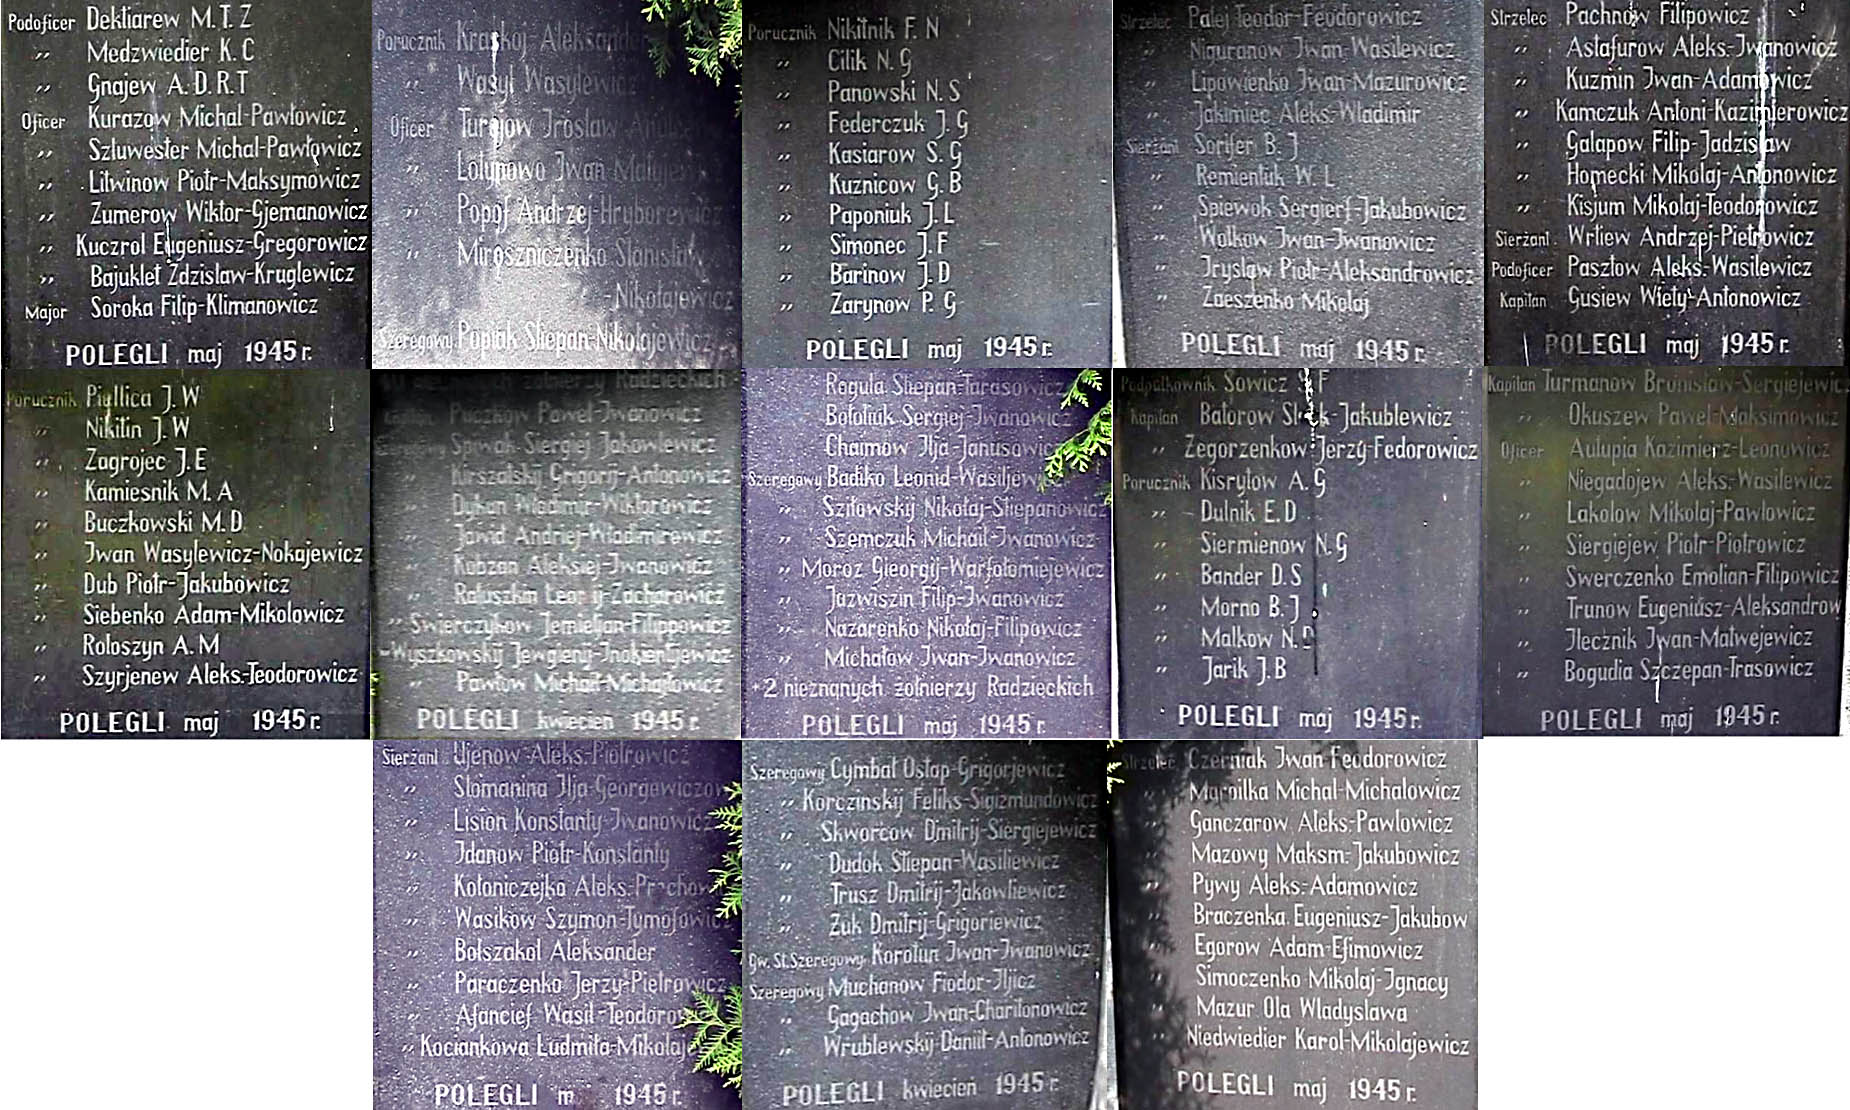 Podoficer Dektiarew M.T.Z
,, Medzwiedier K.C
,, Gnajew A.D.R.T
Oficer Kurazow Michal-Pawłowicz
,, Szłuwester Michal-Pawłowicz
,, Litwinow Piotr-Maksymowicz
,, Zumerow Wiktor-Gjemanowicz
,, Kuczrol Eugeniusz-Gregorowicz
,, Bajuklet Zdzislaw-Kruglewicz
Major Soroka Filip-Klimanowicz
POLEGLI maj 1945 r.
Porucznik Kraskoj-Aleksander
,, Wasyl Wasylewicz
Oficer Turajow Jroslaw
,, Lotynowo Jwan
,, Popof Andrzej-Hryborewicz
,, Miroszniczenko Stanisław
-Nikołajewicz
Szeregowy Popiak Stiepan-Nikołajewicz
POLEGLI maj 1945 r.
Porucznik Nikitnik F. N
,, Cilik N. G
,, Panowski N. S
,, Federczuk J. G
,, Kasiarow S. G
,, Kuznicow G. B
,, Paponiuk J. L
,, Simonec J. F
,, Barinow J. D
,, Zarynow P. G
POLEGLI maj 1945 r.
Strzelec Palej Teodor-Feodorowicz
,, Niguranow Jwan-Wasilewicz
,, Lipowienko Jwan-Mazurowicz
,, Jakimiec Aleks-Wladimir
Sierżant Sorifer B. J
,, Remientuk W. L
,, Spiewok Sergierf-Jakubowicz
,, Wolkow Jwan-Jwanowicz
,, Jryslaw Piotr-Aleksandrowicz
,, Zaeszenko Mikolaj
POLEGLI maj 1945 r.
Strzelec Pachnow Filipowicz
,, Astafurow Aleks-Jwanowicz
,, Kuzmin Jwan-Adamowicz
,, Kamczuk Antoni-Kazimierowicz
,, Galapow Filip-Jadzislaw
,, Homecki Mikolaj-Antonowicz
,, Kisjum Mikolaj-Teodorowicz
Sierżant. Wrtiew Andrzej-Pietrowicz
Podoficer Pasztow Aleks-Wasilewicz
Kapitan Gusiew Wiety-Antonowicz
POLEGLI maj 1945 r.
Porucznik Piellica J. W
,, Nikitin J. W
,, Zagrojec J. E
,, Kamiesnik M. A
,, Buczkowski M. D
,, Jwan Wasylewicz-Nokajewicz
,, Dub Piotr-Jakubowicz
,, Siebenko Adam-Mikolowicz
,, Roloszyn A. M
,, Szyrjenew Aleks-Teodorowicz
POLEGLI maj 1945 r.
żołnierzy Radzieckich
Puczkow Paweł-Jwanowicz
Spiwak Siergiej Jakowlewicz
,, Kirszatskij Grigorij-Antonowicz
,, Dykun Władimir-Wiktorowicz
,, Jawid Andriej-Władimirewicz
,, Kobzan Aleksiej-Jwanowicz
,, Ratuszkin Zacharowicz
,, Swierczykow Jemieljan-Filippowicz
,, Wyszkowskij Jewgienij-Jnokientjewicz
,, Pawłow Michaił-Michajłowicz
POLEGLI kwiecien 1945 r.
Rogula Stiepan-Tarasowicz
Bototiuk Sergiej-Jwanowicz
Chaimow Jlja-Janusowicz
Szeregowy Badiko Leonid-Wasiljewicz
,, Szitowskij Nikołaj-Stiepanowicz
,, Szemczuk Michaił-Jwanowicz
,, Moroz Gieorgij-Warfołomiejewicz
,, Jazwiszin Filip-Jwanowicz
,, Nazarenko Nikołaj-Filipowicz
,, Michałow Jwan-Jwanowicz
+2 nieznanych żołnierzy Radzieckich
POLEGLI maj 1945 r.
Podpałkownik Sowicz F
Kapitan Batorow -Jakublewicz
,, Zegorzenkow-Jerzy-Fedorowicz
Porucznik Kisrytow A. G
,, Dulnik E. D
,, Siermienow N. G
,, Bander D. S
,, Morno B. J
,, Malkow N.
,, Jarik J. B
POLEGLI maj 1945 r.
Kapitan Turmanow Bronislaw-Sergiejewicz
,, Okuszew Pawel-Maksimowicz
Oficer Autupia Kazimierz-Leonowicz
,, Niegadojew Aleks-Wasilewicz
,, Lakolow Mikolaj-Pawlowicz
,, Siergiejew Piotr-Piotrowicz
,, Swerczenko Emolian-Filipowicz
,, Trunow Eugeniusz-Aleksandrow
,, Jlecznik Jwan-Matwejewicz
,, Bogudia Szczepan-Trasowicz
POLEGLI maj 1945 r.
Sierżant Ujenow Aleks-Piotrowicz
,, Slomanina Jlja-Georgewiczow
,, Lision Konstanty-Jwanowicz
,, Jdanow Piotr-Konstanty
,, Kołoniczejko Aleks.
,, Wasikow Szymon-Tymofowicz
,, Bolszakol Aleksander
,, Paraczenko Jerzy-Pietrowicz
,, Afancief Wasil-Teodorowicz
,, Kociankowa Ludmiła-Mikolaje
POLEGLI m 1945 r.
Szeregowy Cymbał Ostap-Grigorjewicz
,, Korczinskij Feliks-Sigizmundowicz
,, Skworcow Dmitrij-Siergiejewicz
,, Dudok Stiepan-Wasiliewicz
,, Trusz Dmitrij-Jakowliewicz
,, Żuk Dmitrij-Grigoriewicz
Gw. St. Szeregowy. Korotun Jwan-Jwanowicz
Szeregowy Muchanow Fiodor-Jljicz
,, Gagachow Jwan-Charitonowicz
,, Wrublewskij-Daniił-Antonowicz
POLEGLI kwiecień 1945 r.
Strzelec Czerniak Jwan Feodorowicz
,, Maroilka Michal-Michalowicz
,, Ganczarow Aleks-Pawlowicz
,, Mazowy Maksm-Jakubowicz
,, Pywy Aleks-Adamowicz
,, Braczenka Eugeniusz-Jakubow
,, Egorow Adam-Efimowicz
,, Simoczenko Mikolaj-Jgnacy
,, Mazur Ola Wladyslawa
,, Niedwiedier Karol-Mikolajewicz
POLEGLI maj 1945 r.